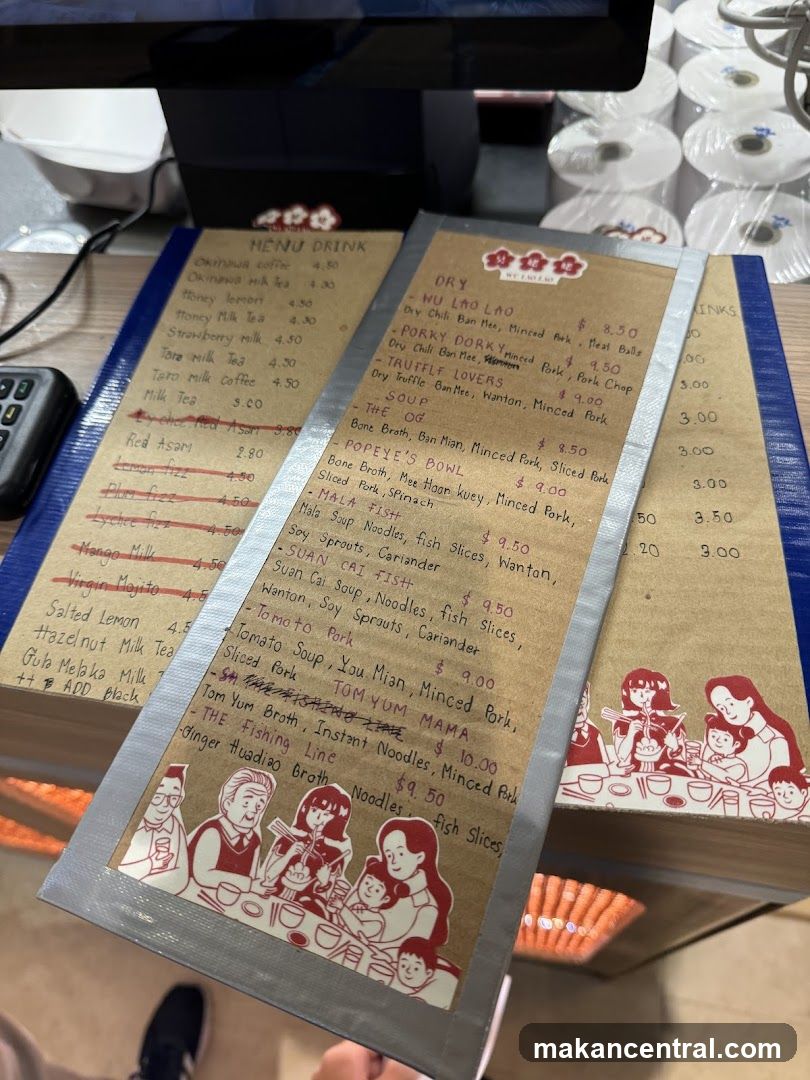 MENU DRINK
Okinawa coffee 4.50
Okinawa milk Tea 4.30
Honey lemon 4.30
Honey Milk Tea 4.30
Strawberry milk 4.50
Taro milk Tea 4.50
Taro milk coffee 4.50
Milk Tea 3.00
Lychee Red Asam 3.80
Red Asam 2.80
Lemon fizz 4.50
Plum fizz 4.50
Lychee fizz 4.50
Mango Milk 4.50
Virgin Mojito 4.5
Salted Lemon 4.5
Hazelnut Milk Tea
Gula Melaka Milk T
++ ADD Black
WU LAO LAO
DRY
- WU LAO LAO $ 8.50
Dry Chili Ban Mee, Minced Pork, Meat Balls
- PORKY DORKY $ 9.50
Dry Chili Ban Mee, Minced Pork, Pork Chop
- TRUFFLE LOVERS $ 9.00
Dry Truffle BanMee, Wanton, Minced Pork
SOUP
- THE OG $ 8.50
Bone Broth, Ban Mian, Minced Pork, Sliced Pork
- POPEYE'S BOWL $ 9.00
Bone Broth, Mee Hoon Kuey, Minced Pork,
Sliced Pork, Spinach
- MALA FISH $ 9.50
Mala Soup Noodles, fish Slices, Wanton,
Soy Sprouts, Cariander
- SUAN CAI FISH $ 9.50
Suan Cai Soup, Noodles, fish Slices,
Wanton, Soy Sprouts, Cariander
- Tomato Pork $ 9.00
Tomato Soup, You Mian, Minced Pork,
Sliced Pork
TOM YUM MAMA $ 10.00
Tom Yum Broth, Instant Noodles, Minced Pork
- THE Fishing Line $9.50
Ginger Huadiao Broth, Noodles, fish Slices,
INKS
.00
3.00
3.00
3.00
3.00
.50 3.50
2.20 3.00
makancentral.com